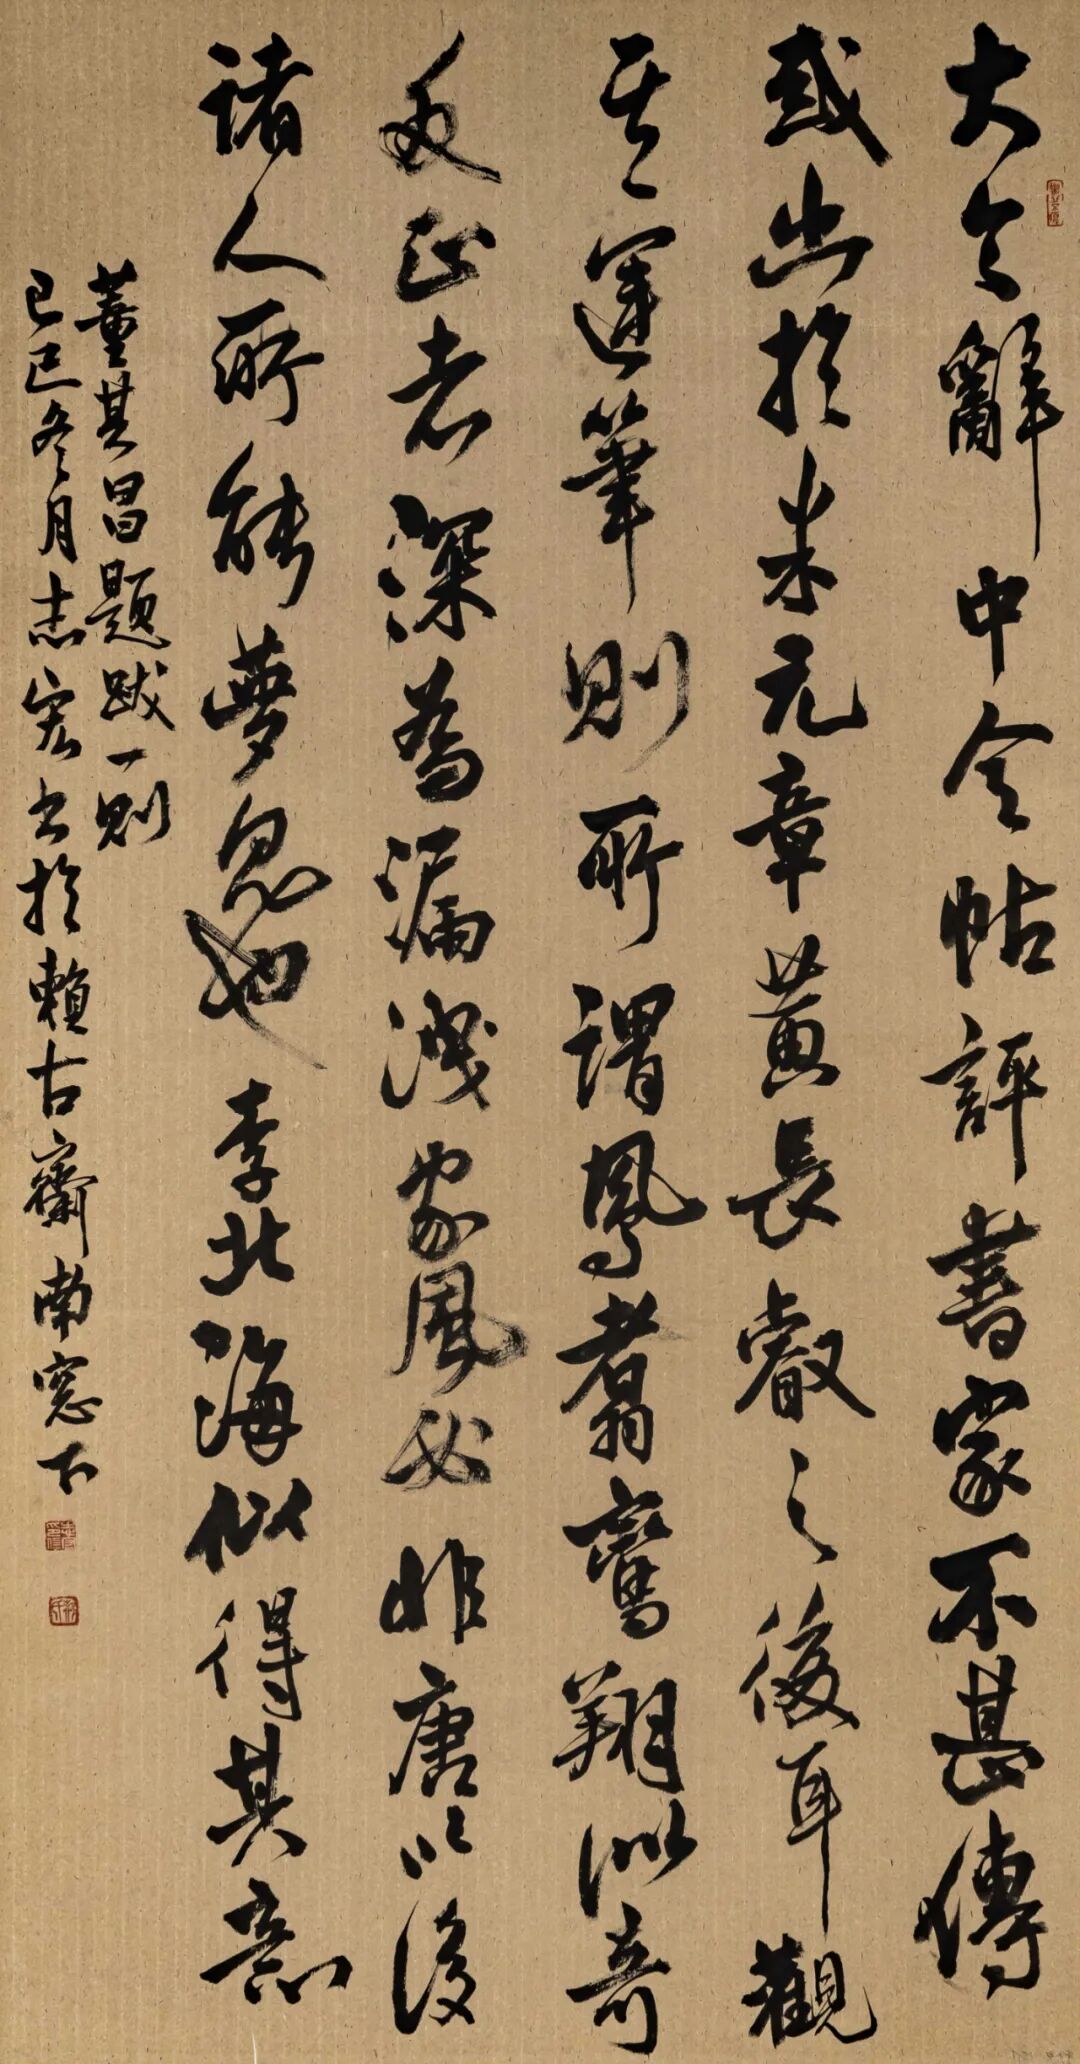 大令辭中令帖評書家不甚傳
或出於米元章黃長叡之後耳觀
其運筆則所謂鳳翥鸞翔似奇
反正者深為漏洩家風必非唐以後
諸人所能夢見也李北海似得其意
董其昌題跋一則
己巳冬月志宏書於賴古齋南窓下